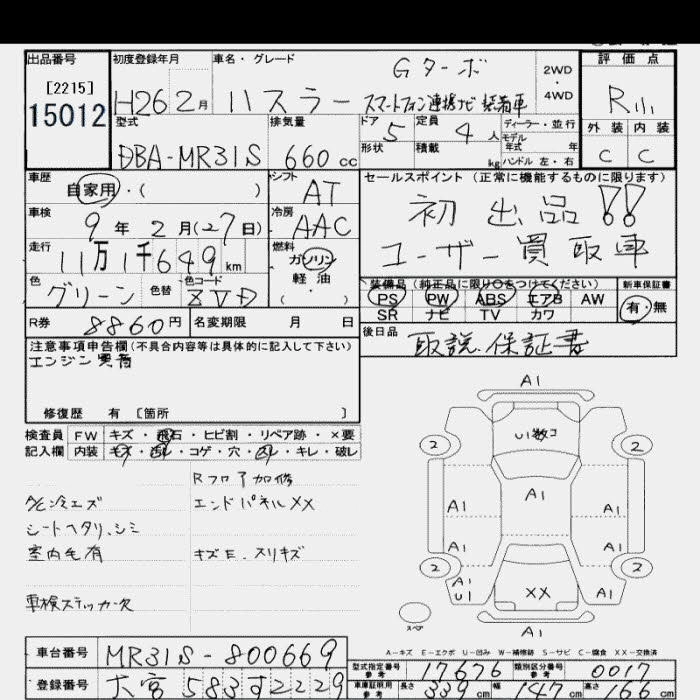 出品番号
[2215]
15012
初度登録年月
H26 2月
車名・グレード
Gターボ
ハスラー スマートフォン連携ナビ装着車
2WD・4WD
評価点
R
外装 内装
C C
型式
DBA-MR31S
排気量
660cc
ドア 5
定員 4人
形状
積載 kg
ディーラー・並行
モデル年式 年
ハンドル 左・右
車歴
自家用・( )
シフト
AT
車検
9年2月(27日)
冷房
AAC
走行
11万1千649km
燃料
ガソリン
軽油
・( )
色
グリーン
色替
色コード
ZVD
R券 8860円
名変期限 月 日
セールスポイント(正常に機能するものに限ります)
初出品!!
ユーザー買取車
装備品(純正品に限り○をつけてください)
PS PW ABS エアB AW
SR ナビ TV カワ
新車保証書
有・無
後日品
取説.保証書
注意事項申告欄(不具合内容等は具体的に記入して下さい)
エンジン異音
修復歴 有 [箇所 ]
検査員 FW キズ・飛石・ヒビ割・リペア跡・×要
記入欄 内装 キズ・汚れ・コゲ・穴・スレ・キレ・破レ
Rフロア加修
A/C冷エズ エンドパネルXX
シートヘタリ、シミ
室内毛有 キズE.スリキズ
車検ステッカー欠
A1
2 2
U1数コ
A1
A1 A1
A1 A1
2 2
A1
U1 XX A1
A1
スペア
A-キズ E-エクボ U-凹み W-補修跡 S-サビ C-腐食 XX-交換済
車台番号 MR31S-800669
登録番号 大宮583す2229
型式指定番号 参考 17676
類別区分番号 参考 0017
車庫証明用 参考 長さ 339cm 幅 147cm 高さ 166cm